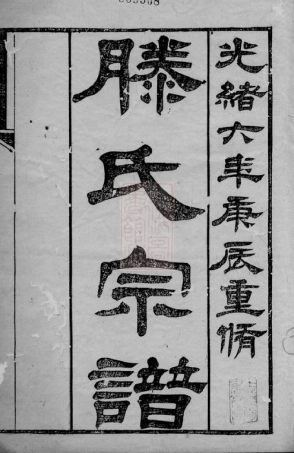 光緒六年庚辰重脩
滕氏宗譜